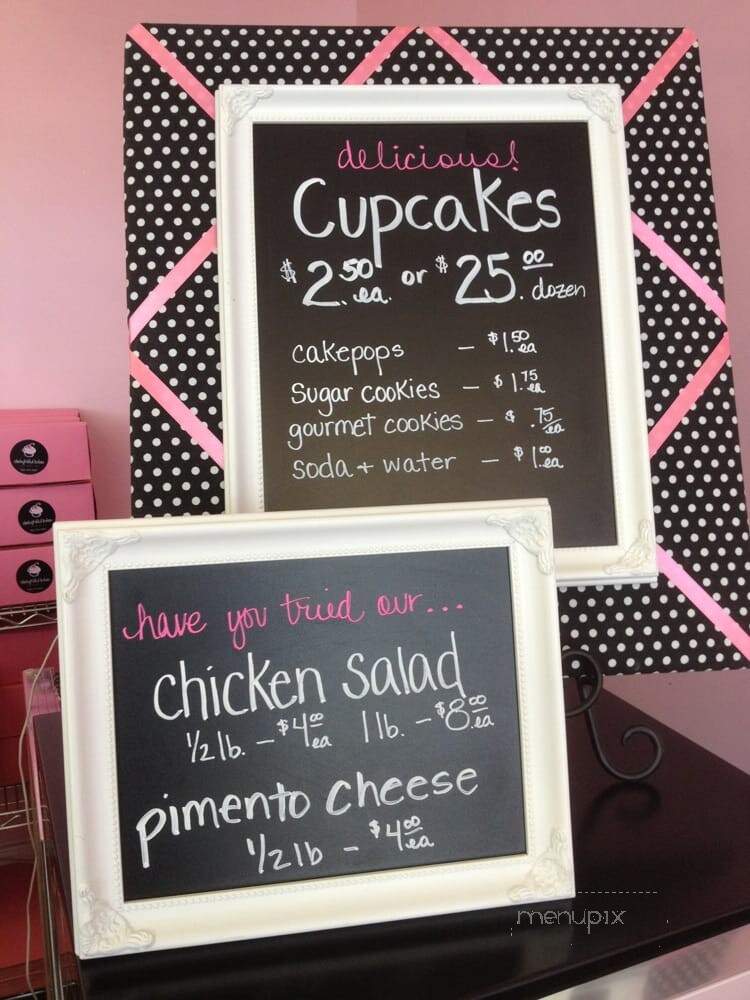 delicious!
Cupcakes
$2.50 ea. or $25.00 dozen
cakepops – $1.50 ea
Sugar cookies – $1.75 ea
gourmet cookies – $.75 ea
soda + water – $1.00 ea
have you tried our...
chicken salad
1/2 lb. – $4.00 ea 1 lb. – $8.00 ea
pimento cheese
1/2 lb – $4.00 ea
menupix